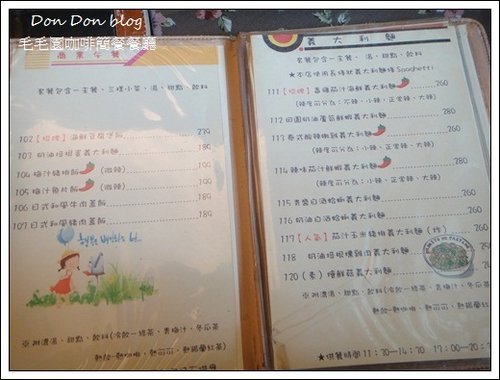 Don Don blog
毛毛園咖啡簡餐餐廳
商業午餐
套餐包含一主餐、三樣小菜、湯、甜點、飲料
102【招牌】海鮮豆腐煲飯 239
103 奶油培根蛋義大利麵 189
104 梅汁豬排飯 (微辣) 199
105 梅汁魚片飯 (微辣) 199
106 日式和風牛肉蓋飯 189
107 日式和風豬肉蓋飯 189
※附濃湯、甜點、飲料(冷飲-綠茶、青梅汁、冬瓜茶
熱飲-熱咖啡、熱可可、熱錫蘭紅茶)
義大利麵
套餐包含一主餐、湯、甜點、飲料
★本店使用長條狀義大利麵條 Spaghetti
111【招牌】香橋茄汁海鮮義大利麵 260
(辣度可分為:不辣、小辣、正常辣、大辣)
112 田園奶油蘆筍鮮蝦義大利麵 260
113 泰式酸辣椒雞義大利麵 260
(辣度可分為:小辣、正常辣、大辣)
114 辣味茄汁鮮蝦義大利麵 280
(辣度可分為:小辣、正常辣、大辣)
115 青醬白酒蛤蜊義大利麵 260
116 奶油白酒蛤蜊義大利麵 260
117【人氣】茄汁玉米豬柳義大利麵(炸)
118 奶油培根燻雞肉義大利麵
120 (素) 燴鮮菇義大利麵
※附濃湯、甜點、飲料(冷飲-綠茶、青梅汁、冬瓜茶
熱飲-熱咖啡、熱可可、熱錫蘭紅茶)
★供餐時間 11:30~14:30 17:30